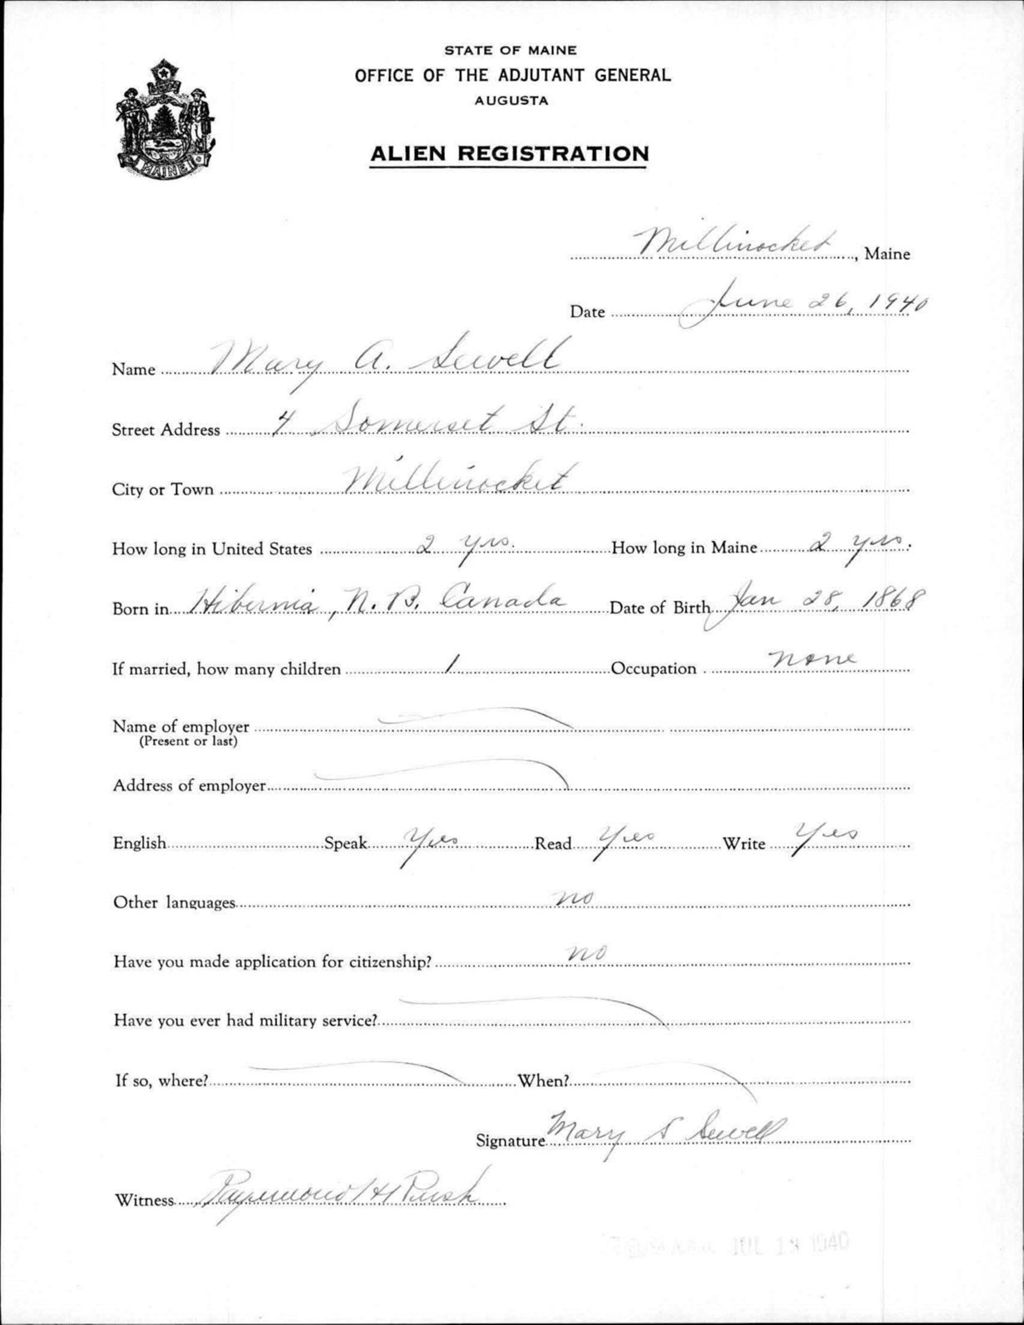 STATE OF MAINE
OFFICE OF THE ADJUTANT GENERAL
AUGUSTA
ALIEN REGISTRATION
MAINE
Millinocket, Maine
Date June 26, 1940
Name Mary A. Sewell
Street Address 4 Somerset St.
City or Town Millinocket
How long in United States 2 yrs. How long in Maine 2 yrs.
Born in Hibernia, N. B. Canada Date of Birth Jan 28, 1868
If married, how many children 1 Occupation none
Name of employer
(Present or last)
Address of employer
English Speak Yes Read Yes Write Yes
Other languages no
Have you made application for citizenship? no
Have you ever had military service?
If so, where? When?
Signature Mary S Sewell
Witness Raymond H Rush
JUL 13 1940